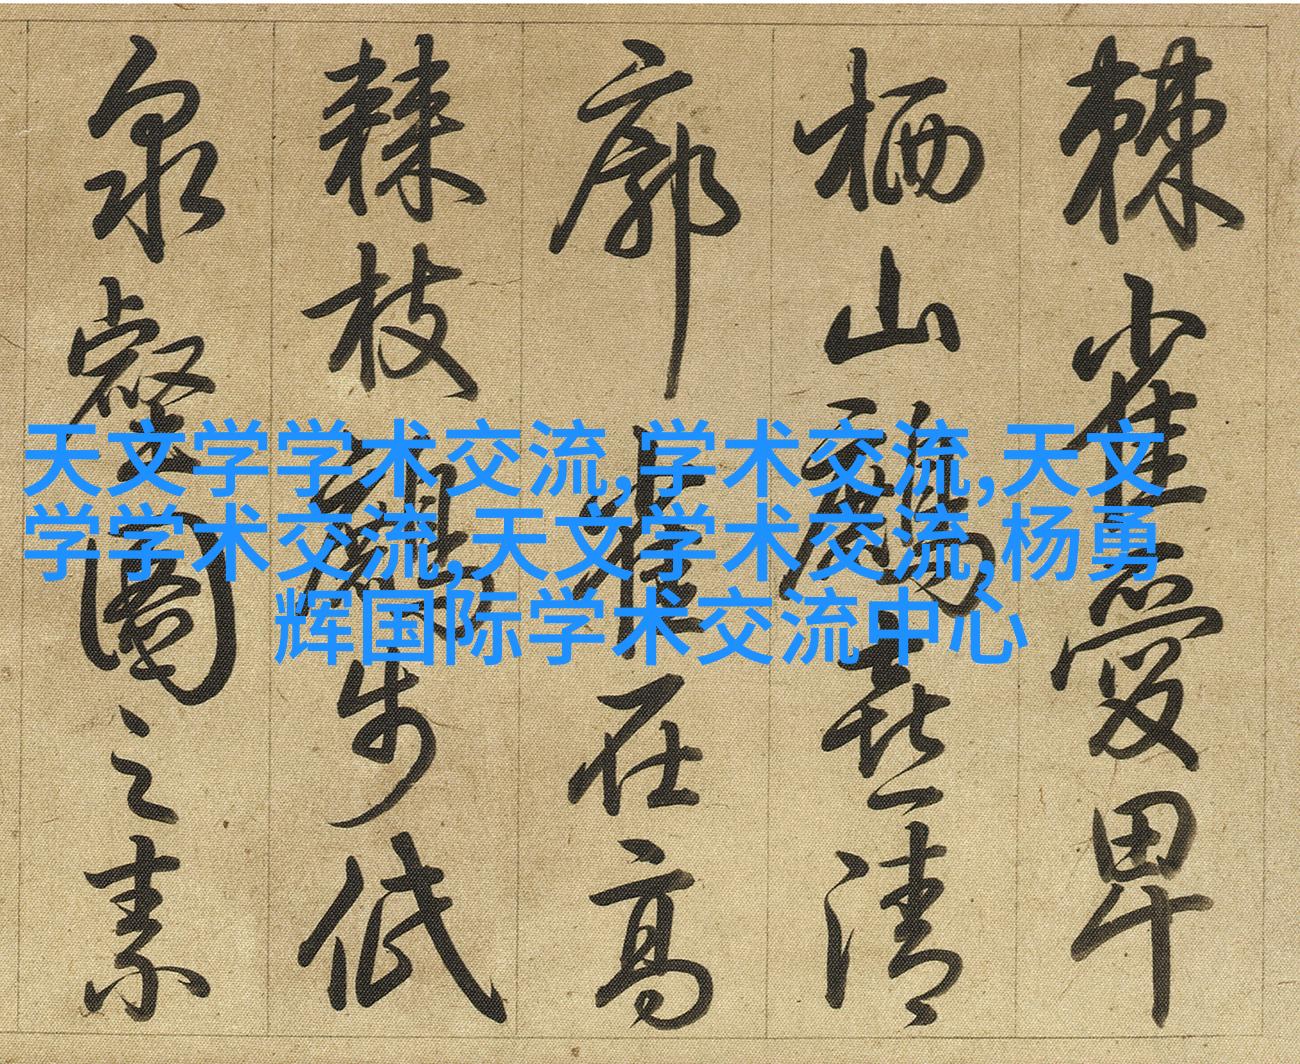 棘雀愛卑
栖山喜清
廓在高
棘枝步低
泉壑圖之素
天文学学术交流,学术交流,天文
学学术交流,天文学术交流,杨勇
辉国际学术交流中心